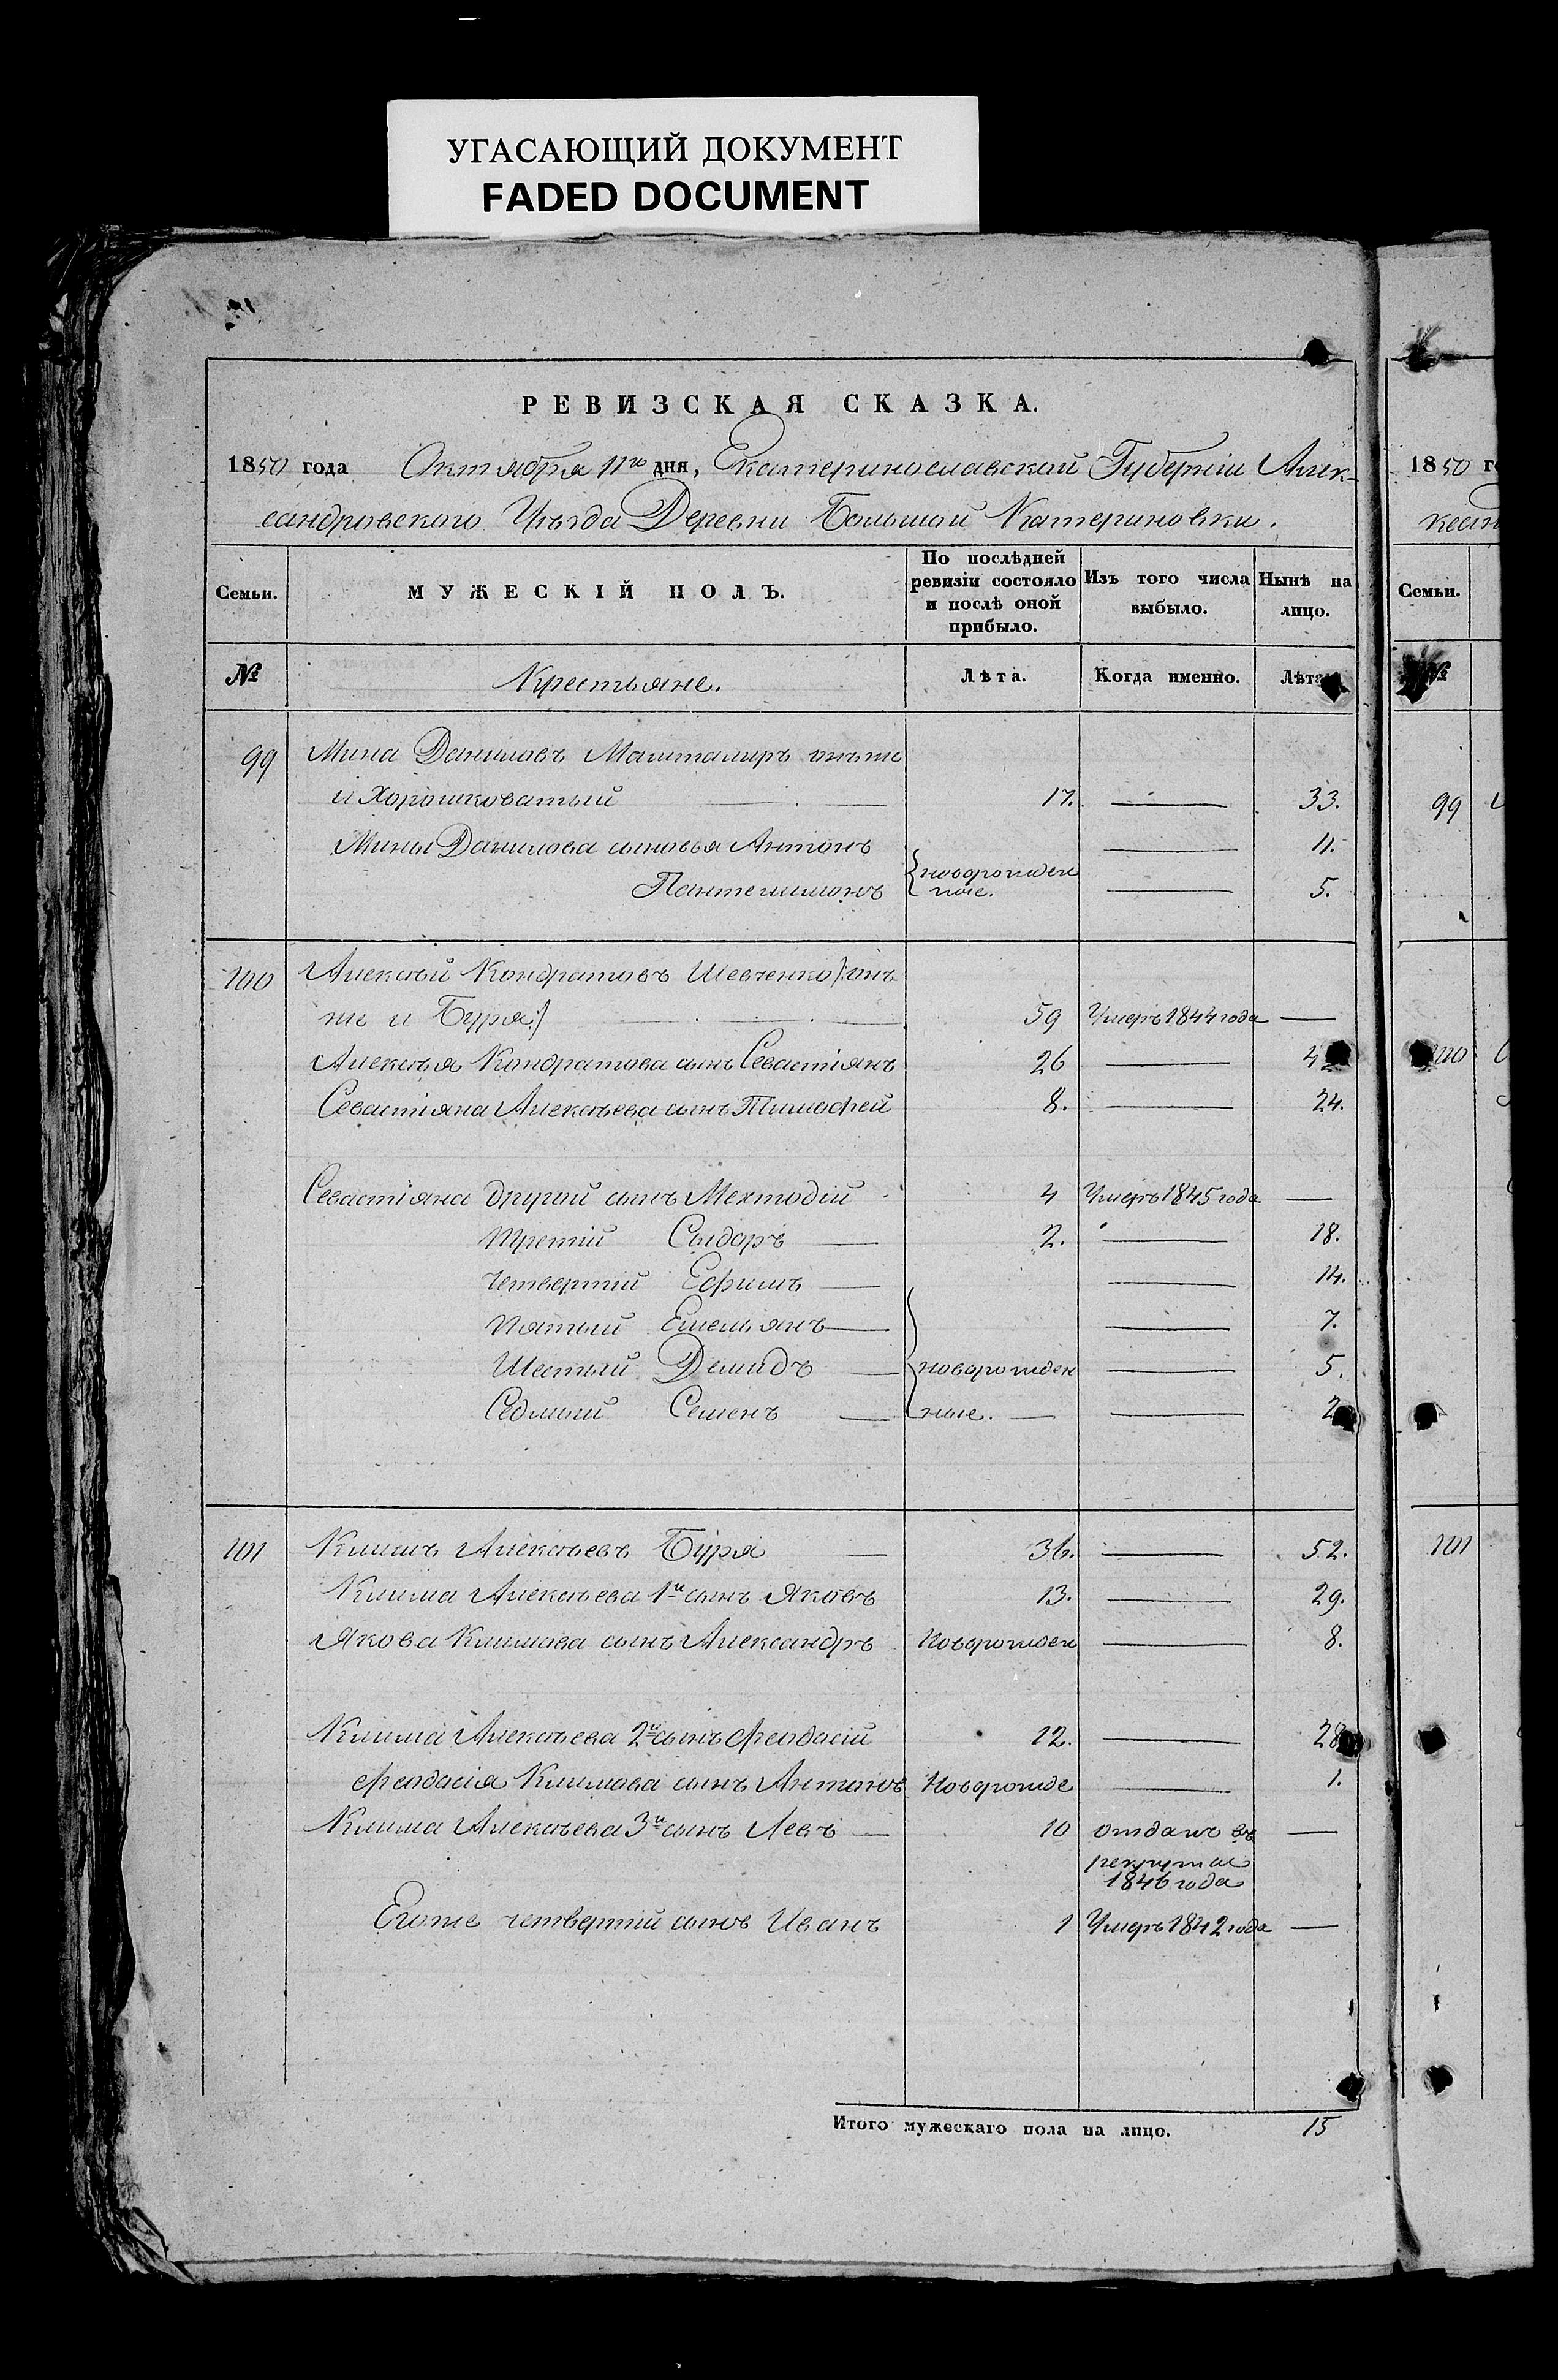 УГАСАЮЩИЙ ДОКУМЕНТ
FADED DOCUMENT
РЕВИЗСКАЯ СКАЗКА.
1850 года Октября 11го дня, Екатеринославской Губерніи Алек-
сандровского Уѣзда Деревни Большой Катериновки.
Семьи. МУЖЕСКІЙ ПОЛЪ. По послѣдней ревизіи состояло и послѣ оной прибыло. Изъ того числа выбыло. Нынѣ на лицо.
№ Крестьяне. Лѣта. Когда именно. Лѣта.
99 Мина Даниловъ Машталиръ онъ же
и Хорошковатый 17. — 33.
Мины Данилова сыновья Антонъ — 11.
{новорожден
Пантелимонъ ные. — 5.
100 Алексѣй Кондратовъ Шевченко /:онъ
же и Буря:/ 59 Умеръ 1844 года —
Алексѣя Кондратова сынъ Севастіянъ 26 — 42
Севастіяна Алексѣева сынъ Тимофей 8. — 24.
Севастіяна другой сынъ Мехтодій 4 Умеръ 1845 года —
третій Сыдоръ — 2. — 18.
четвертій Ефимъ — — 14.
пятый Емельянъ — — 7.
Шестый Демидъ — {новорожден — 5.
Седмый Семенъ — ные. — — 2
101 Климъ Алексѣевъ Буря — 36. — 52.
Клима Алексѣева 1й сынъ Яковъ 13. — 29.
Якова Климова сынъ Александръ Новорожден — 8.
Клима Алексѣева 2й сынъ Феодосій 12. — 28
Феодосія Климова сынъ Антонъ Новорожде — 1.
Клима Алексѣева 3й сынъ Левъ — 10 отданъ въ —
рекруты
1846 года
Егоже четвертій сынъ Иванъ 1 Умеръ 1842 года —
Итого мужескаго пола на лицо. 15
1850 го
ксан
Семьи.
№
99
100
101